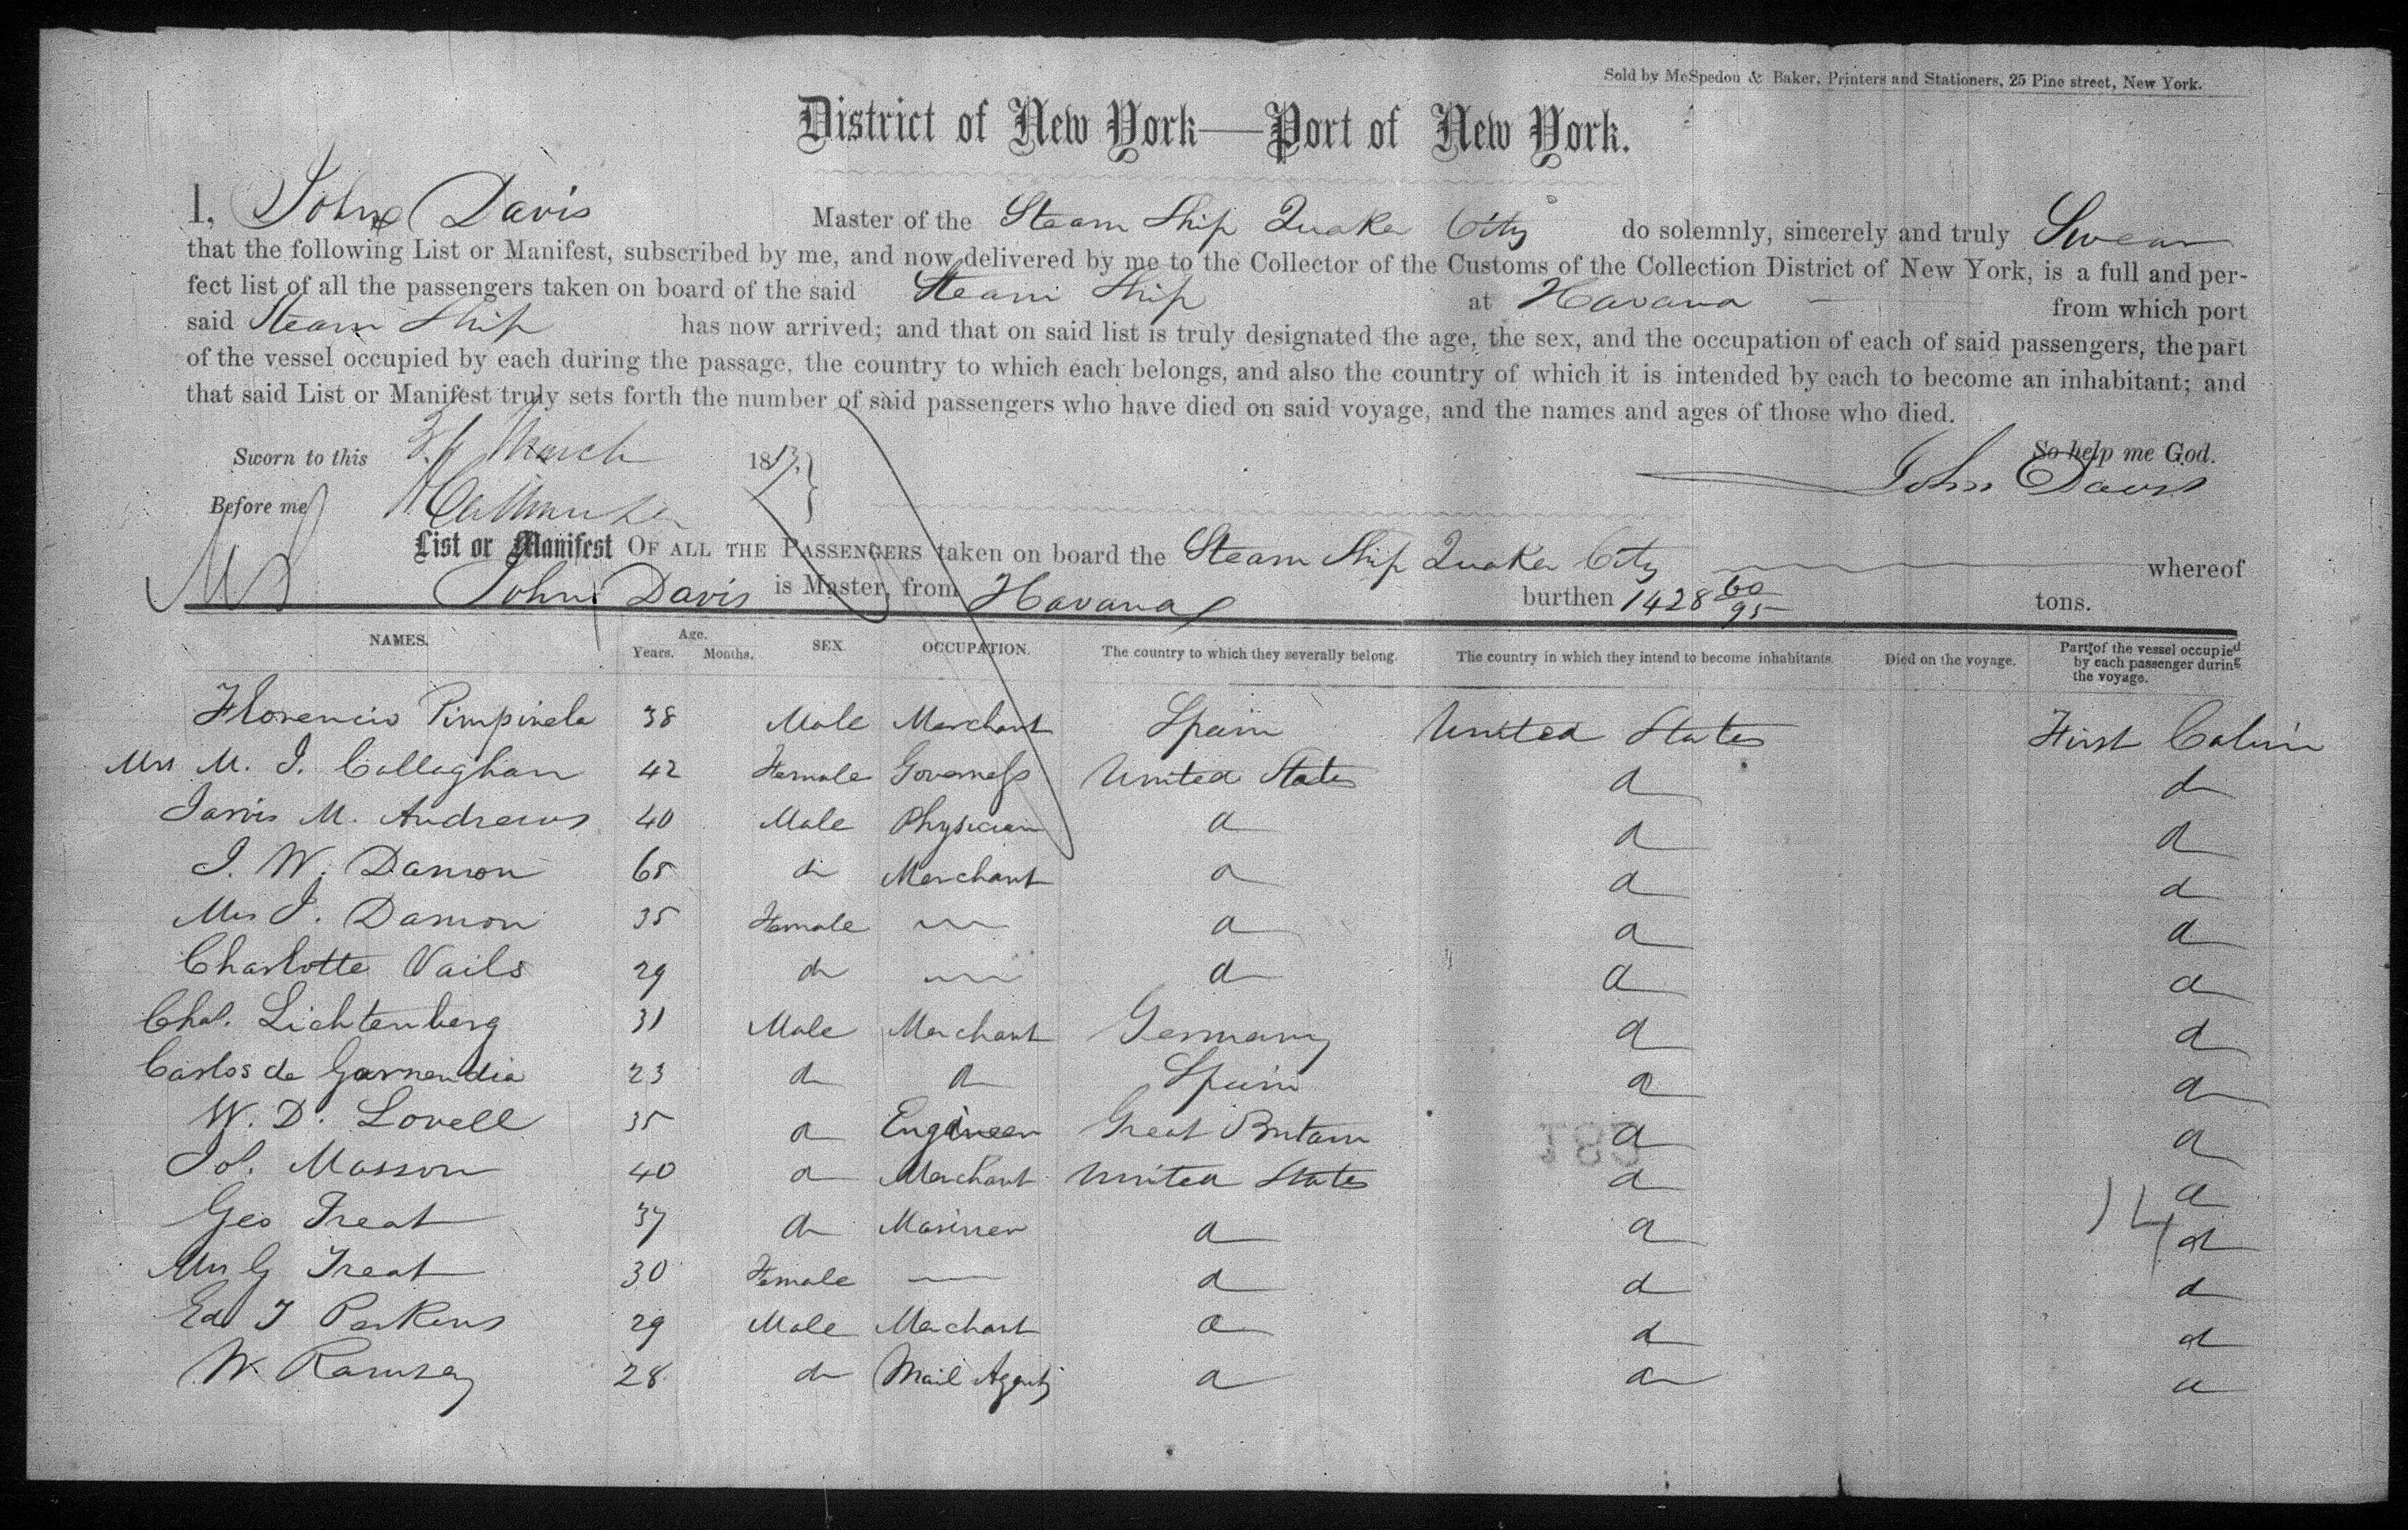 Sold by McSpedon & Baker, Printers and Stationers, 25 Pine street, New York.
District of New York—Port of New York.
I, John Davis Master of the Steam Ship Quaker City do solemnly, sincerely and truly Swear
that the following List or Manifest, subscribed by me, and now delivered by me to the Collector of the Customs of the Collection District of New York, is a full and per-
fect list of all the passengers taken on board of the said Steam Ship at Havana from which port
said Steam Ship has now arrived; and that on said list is truly designated the age, the sex, and the occupation of each of said passengers, the part
of the vessel occupied by each during the passage, the country to which each belongs, and also the country of which it is intended by each to become an inhabitant; and
that said List or Manifest truly sets forth the number of said passengers who have died on said voyage, and the names and ages of those who died.
So help me God.
Sworn to this March 18
John Davis
Before me
List or Manifest OF ALL THE PASSENGERS taken on board the Steam Ship Quaker City whereof
John Davis is Master, from Havana burthen 1428 60/95 tons.
NAMES. Age. Years. Months. SEX. OCCUPATION. The country to which they severally belong. The country in which they intend to become inhabitants. Died on the voyage. Part of the vessel occupied by each passenger during the voyage.
Florencio Pimpinela 38 Male Merchant Spain United States First Cabin
Mrs M. J. Callaghan 42 Female Governess United States d d
Jarvis M. Andrews 40 Male Physician d d d
J. W. Damon 65 d Merchant d d d
Mrs J. Damon 35 Female — d d d
Charlotte Vails 29 d — d d d
Chas. Lichtenberg 31 Male Merchant Germany d d
Carlos de Garmendia 23 d d Spain d d
W. D. Lovell 35 d Engineer Great Britain d d
Jos. Masson 40 d Merchant United States d d
Geo Treat 37 d Mariner d d d
Mrs G Treat 30 Female — d d d
Ed T Perkins 29 Male Merchant d d d
W. Ramsey 28 d Mail Agent d d d
14